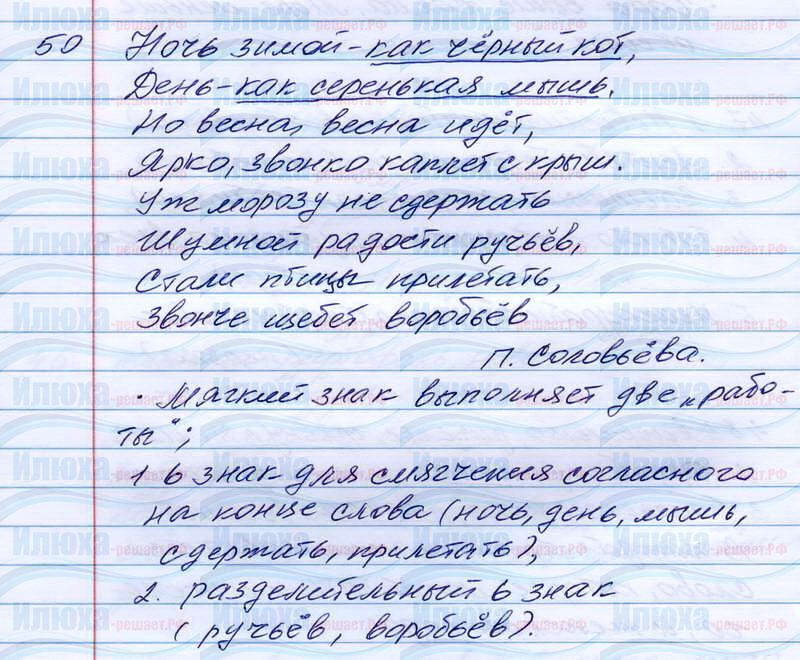 50 Ночь зимой - как чёрный кот,
День - как серенькая мышь.
Но весна, весна идёт,
Ярко, звонко каплет с крыш.
Уж морозу не сдержать
Шумной радости ручьёв,
Стали птицы прилетать,
Звонче щебет воробьёв
П. Соловьёва.
· Мягкий знак выполняет две „рабо-
ты";
1 ь знак для смягчения согласного
на конце слова (ночь, день, мышь,
сдержать, прилетать),
2. разделительный ь знак
(ручьёв, воробьёв).